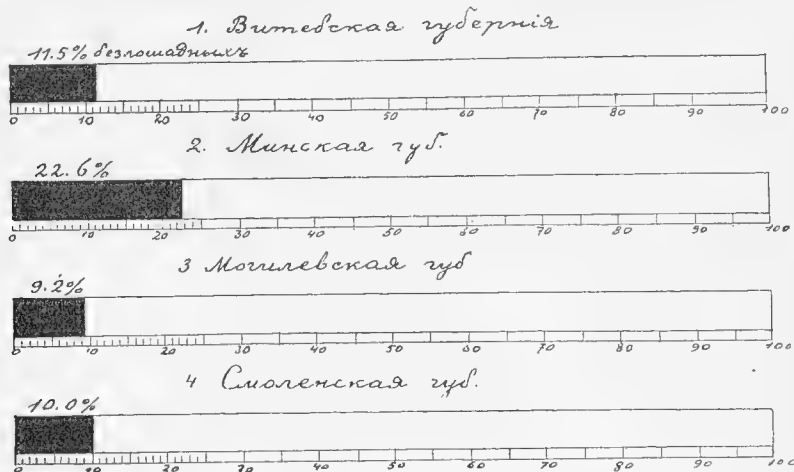 1. Витебская губернія
11.5% безлошадныхъ
0 10 20 30 40 50 60 70 80 90 100
2. Минская губ.
22.6%
0 10 20 30 40 50 60 70 80 90 100
3 Могилевская губ
9.2%
0 10 20 30 40 50 60 70 80 90 100
4 Смоленская губ.
10.0%
0 10 20 30 40 50 60 70 80 90 100